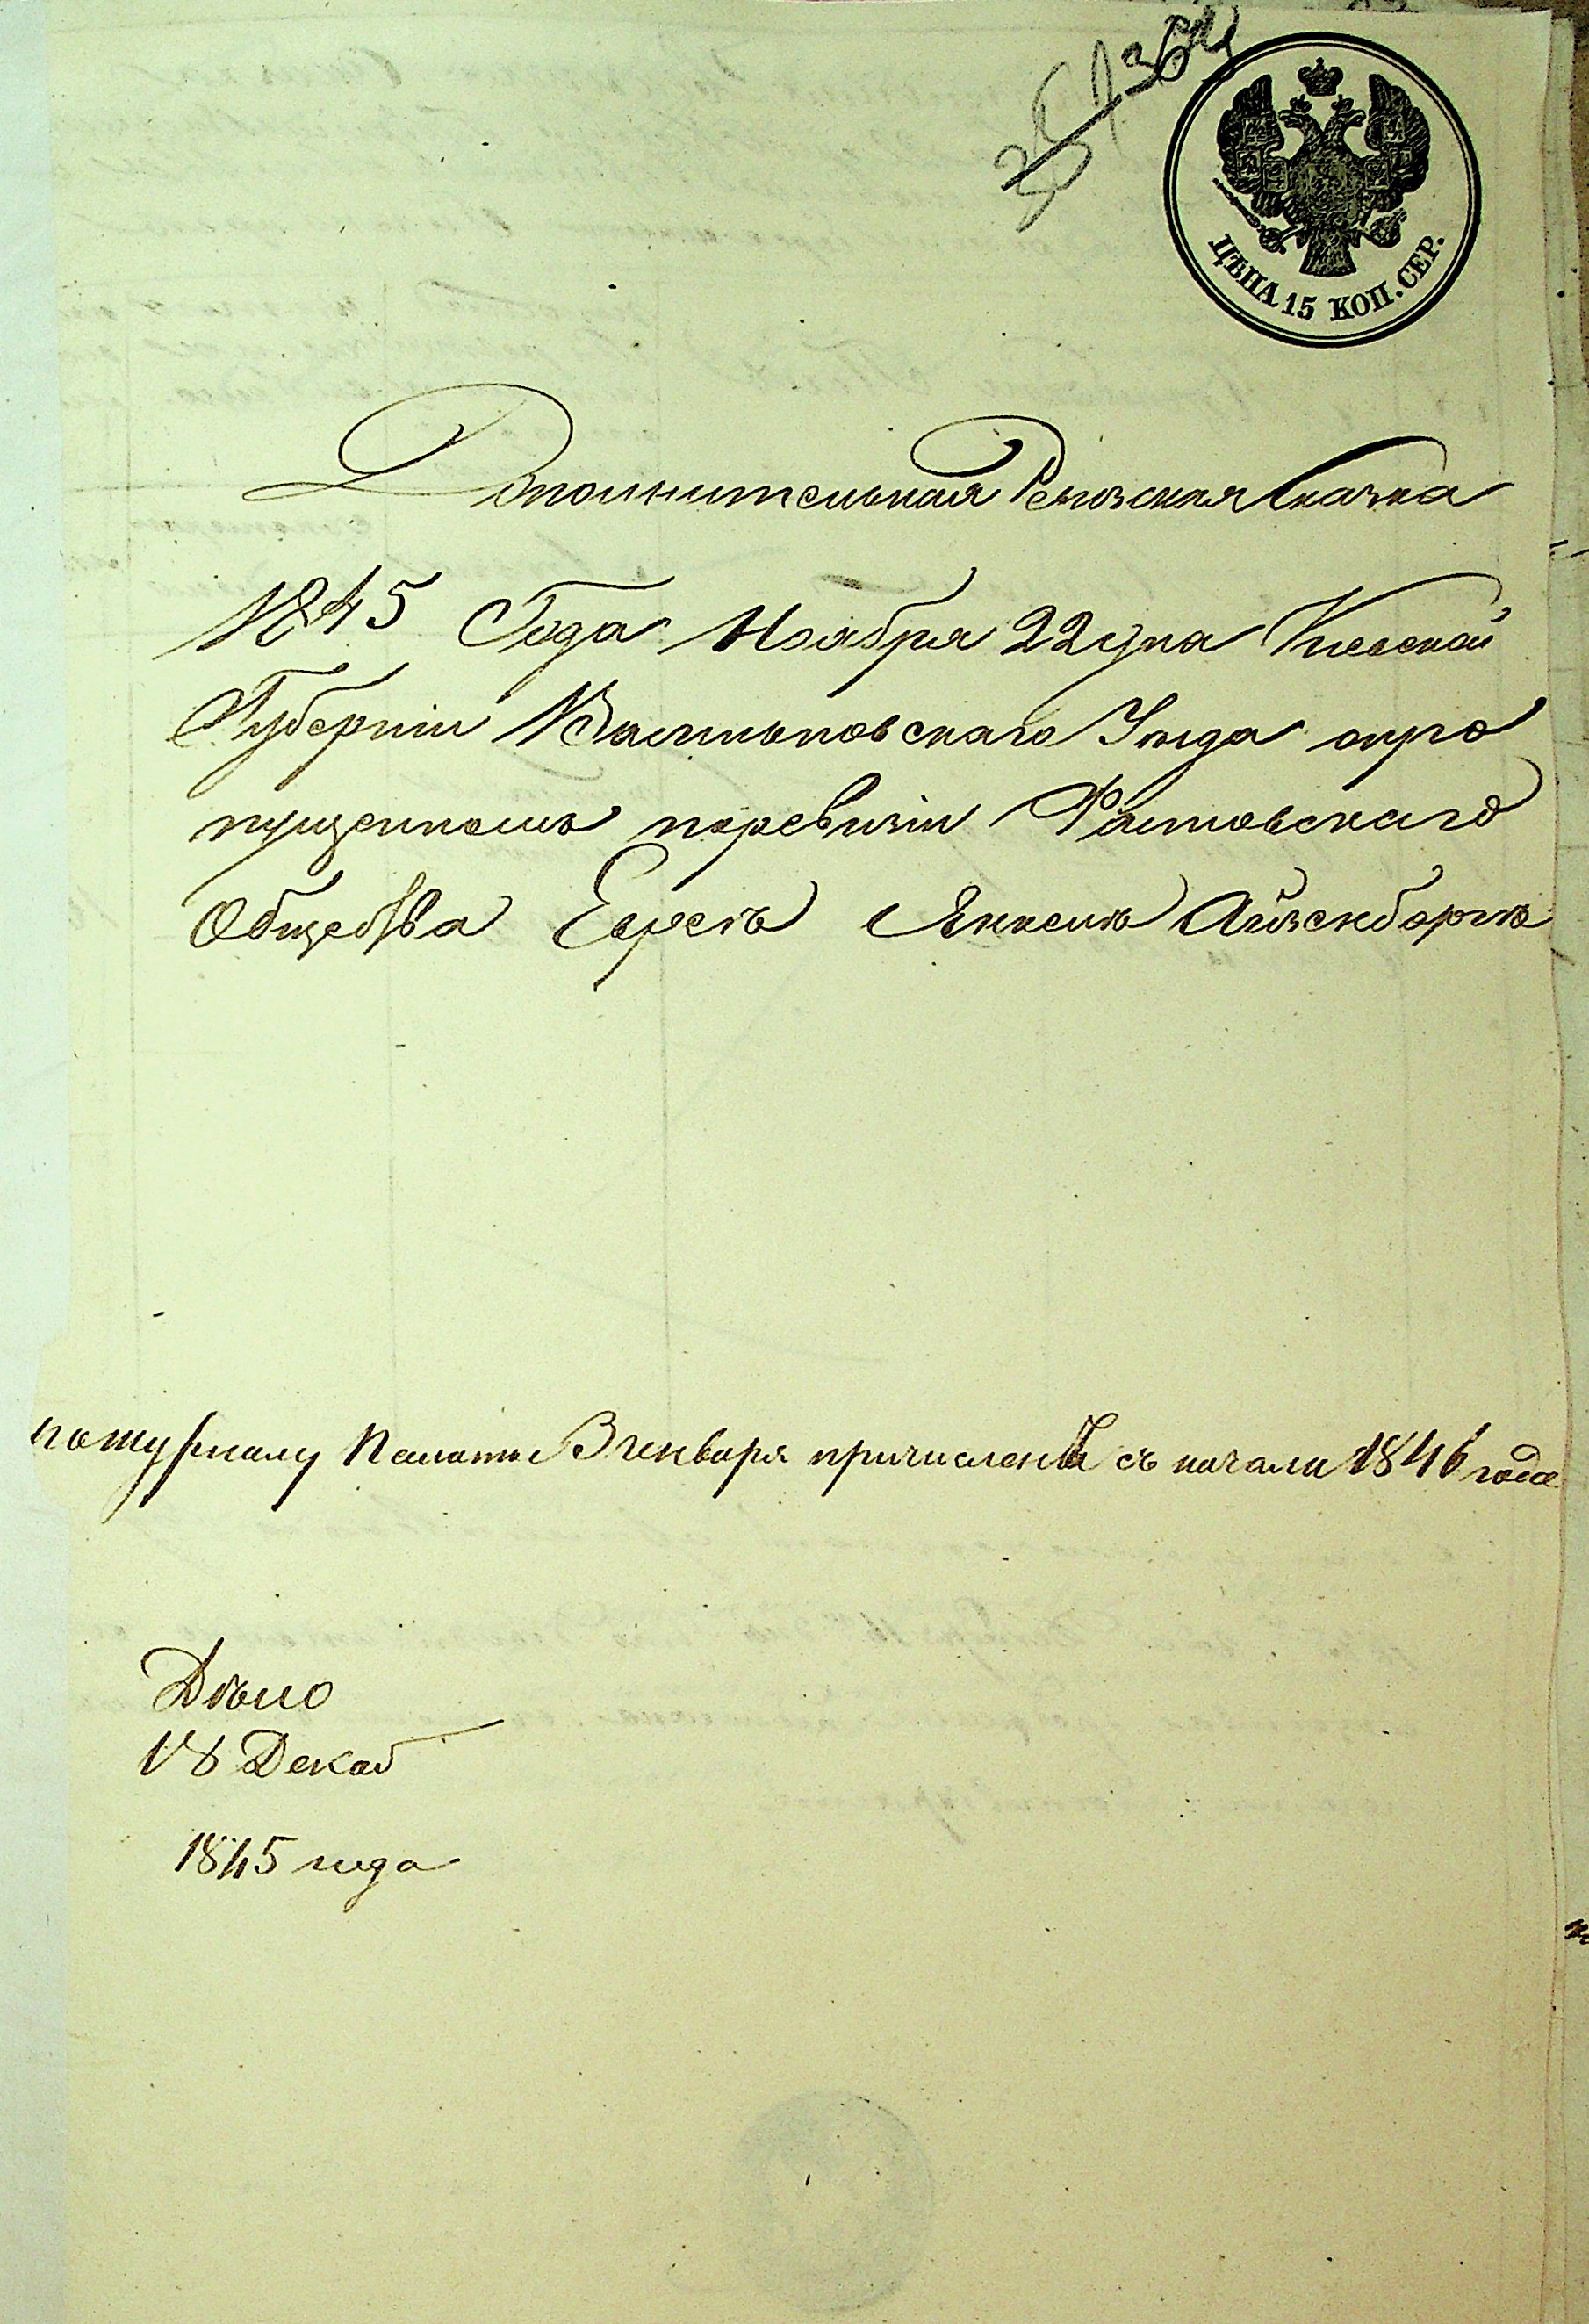 35/364
ЦѢНА 15 КОП. СЕР.
Дополнительная Ревизская Сказка
1845 Года Ноября 22 дня Киевской
Губерніи Васильковскаго Уѣзда опро
пущенномъ поревизіи Фастовскаго
Общества Евреѣ Айзенбергѣ
пожурналу Палаты Генваря причислены съ начала 1846 года
Дѣло
18 Декаб
1845 года